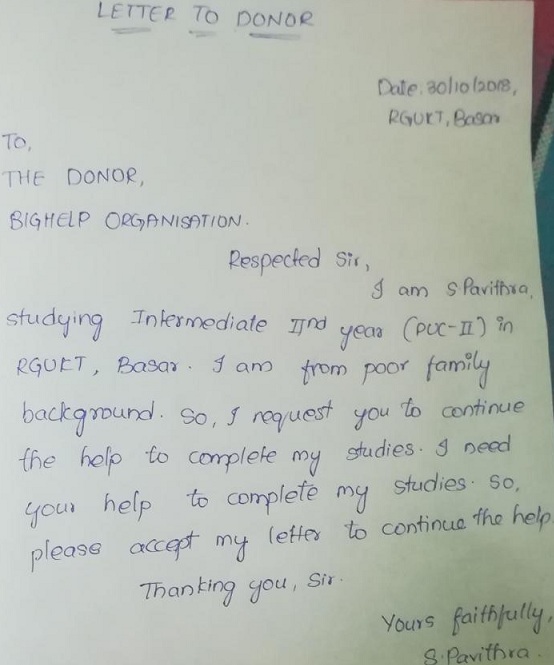 LETTER TO DONOR
Date: 30/10/2018,
RGUKT, Basar
To,
THE DONOR,
BIGHELP ORGANISATION.
Respected Sir,
I am S.Pavithra,
studying Intermediate IInd year (PUC-II) in
RGUKT, Basar. I am from poor family
background. So, I request you to continue
the help to complete my studies. I need
your help to complete my studies. So,
please accept my letter to continue the help
Thanking you, Sir.
Yours faithfully,
S.Pavithra.